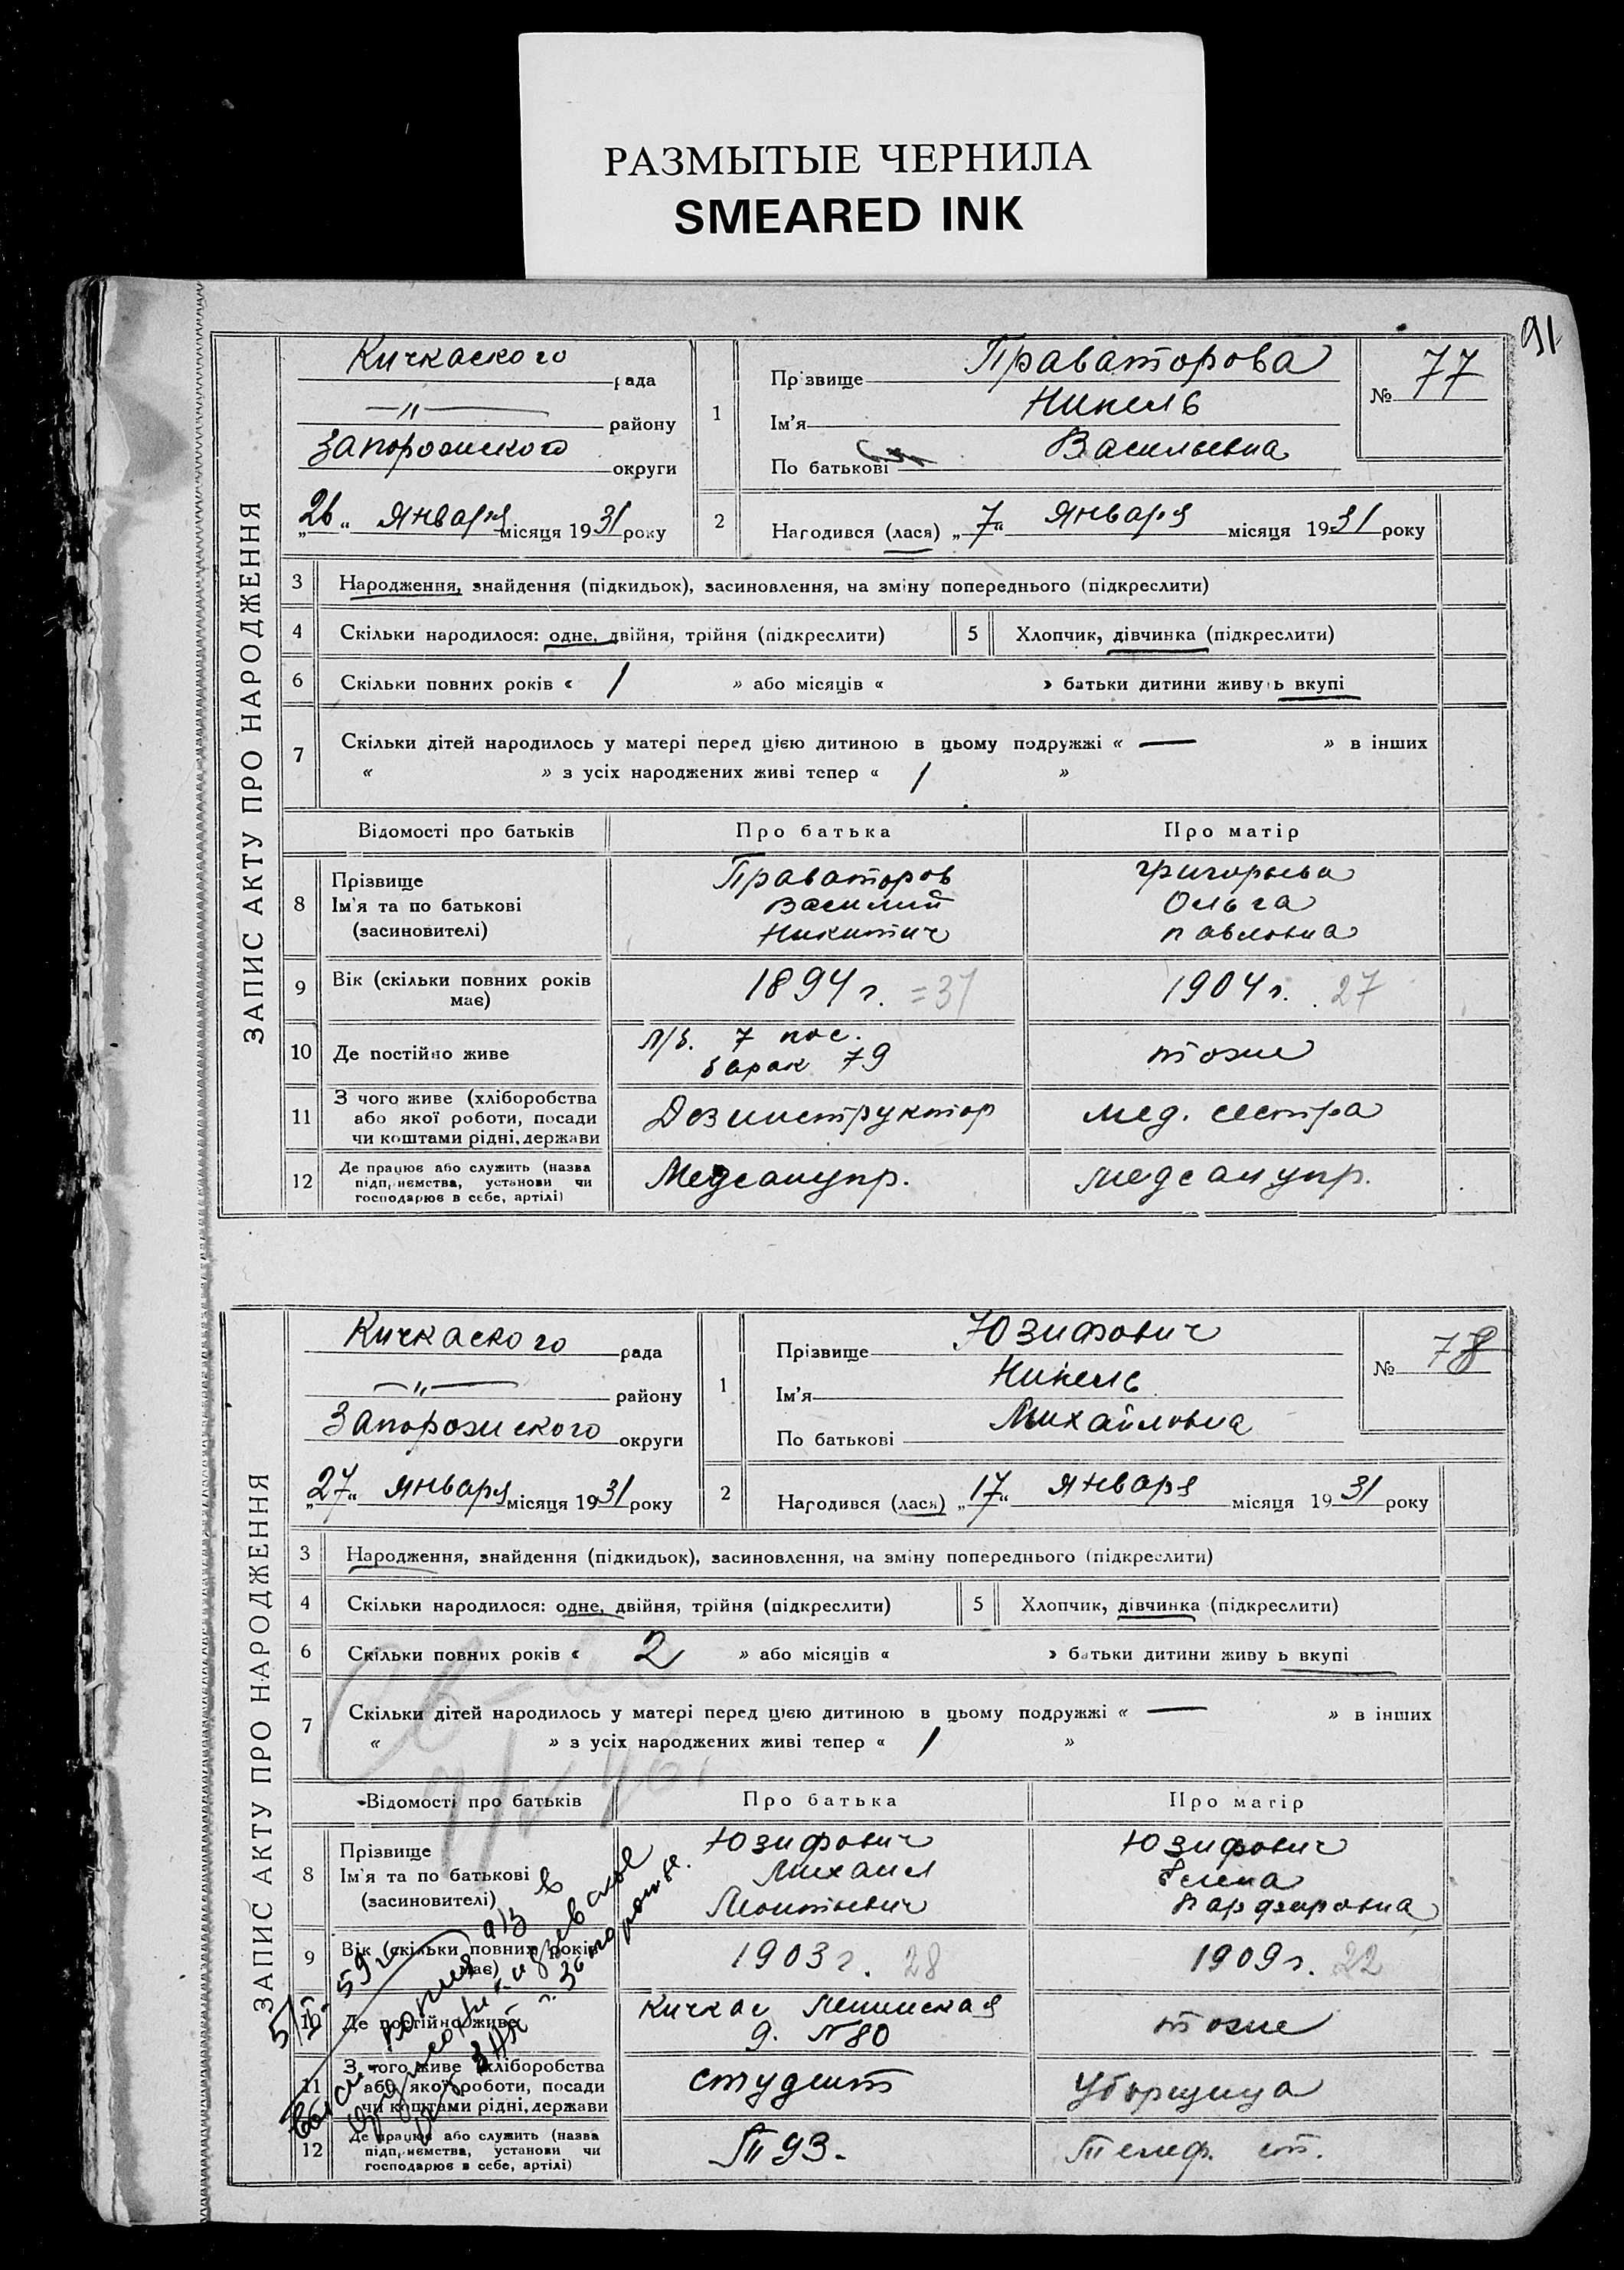 РАЗМЫТЫЕ ЧЕРНИЛА
SMEARED INK
91
ЗАПИС АКТУ ПРО НАРОДЖЕННЯ
Кичкаского рада
—"— району
Запорожского округи
„26“ января місяця 1931 року
1
Прізвище Праваторова
Ім'я Нинель
По батькові Васильевна
№ 77
2 Народився (лася) „7“ января місяця 1931 року
3 Народження, знайдення (підкидьок), засиновлення, на зміну попереднього (підкреслити)
4 Скільки народилося: одне, двійня, трійня (підкреслити) 5 Хлопчик, дівчинка (підкреслити)
6 Скільки повних років « 1 » або місяців « » батьки дитини живуть вкупі
7 Скільки дітей народилось у матері перед цією дитиною в цьому подружжі « — » в інших
« » з усіх народжених живі тепер « 1 »
Відомості про батьків Про батька Про матір
8 Прізвище Праваторов Григорьева
Ім'я та по батькові Василий Ольга
(засиновителі) Никитич Павловна
9 Вік (скільки повних років має) 1894 г. =37 1904 г. 27
10 Де постійно живе Л/б. 7 пос. барак 79 тоже
11 З чого живе (хліборобства або якої роботи, посади чи коштами рідні, держави Дезинструктор мед. сестра
12 Де працює або служить (назва підприємства, установи чи господарює в себе, артілі) Медсанупр. Медсанупр.
ЗАПИС АКТУ ПРО НАРОДЖЕННЯ
Кичкаского рада
—"— району
Запорожского округи
„27“ января місяця 1931 року
1
Прізвище Юзифович
Ім'я Нинель
По батькові Михайловна
№ 78
2 Народився (лася) „17“ января місяця 1931 року
3 Народження, знайдення (підкидьок), засиновлення, на зміну попереднього (підкреслити)
4 Скільки народилося: одне, двійня, трійня (підкреслити) 5 Хлопчик, дівчинка (підкреслити)
6 Скільки повних років « 2 » або місяців « » батьки дитини живуть вкупі
7 Скільки дітей народилось у матері перед цією дитиною в цьому подружжі « — » в інших
« » з усіх народжених живі тепер « 1 »
Відомості про батьків Про батька Про матір
8 Прізвище Юзифович Юзифович
Ім'я та по батькові Михаил Елена
(засиновителі) Леонтьевич
9 Вік (скільки повних років має) 1903 г. 28 1909 г. 22
10 Де постійно живе Кичкас Ленинская д. №80 тоже
11 З чого живе (хліборобства або якої роботи, посади чи коштами рідні, держави студент Уборщица
12 Де працює або служить (назва підприємства, установи чи господарює в себе, артілі) Телеф. ст.